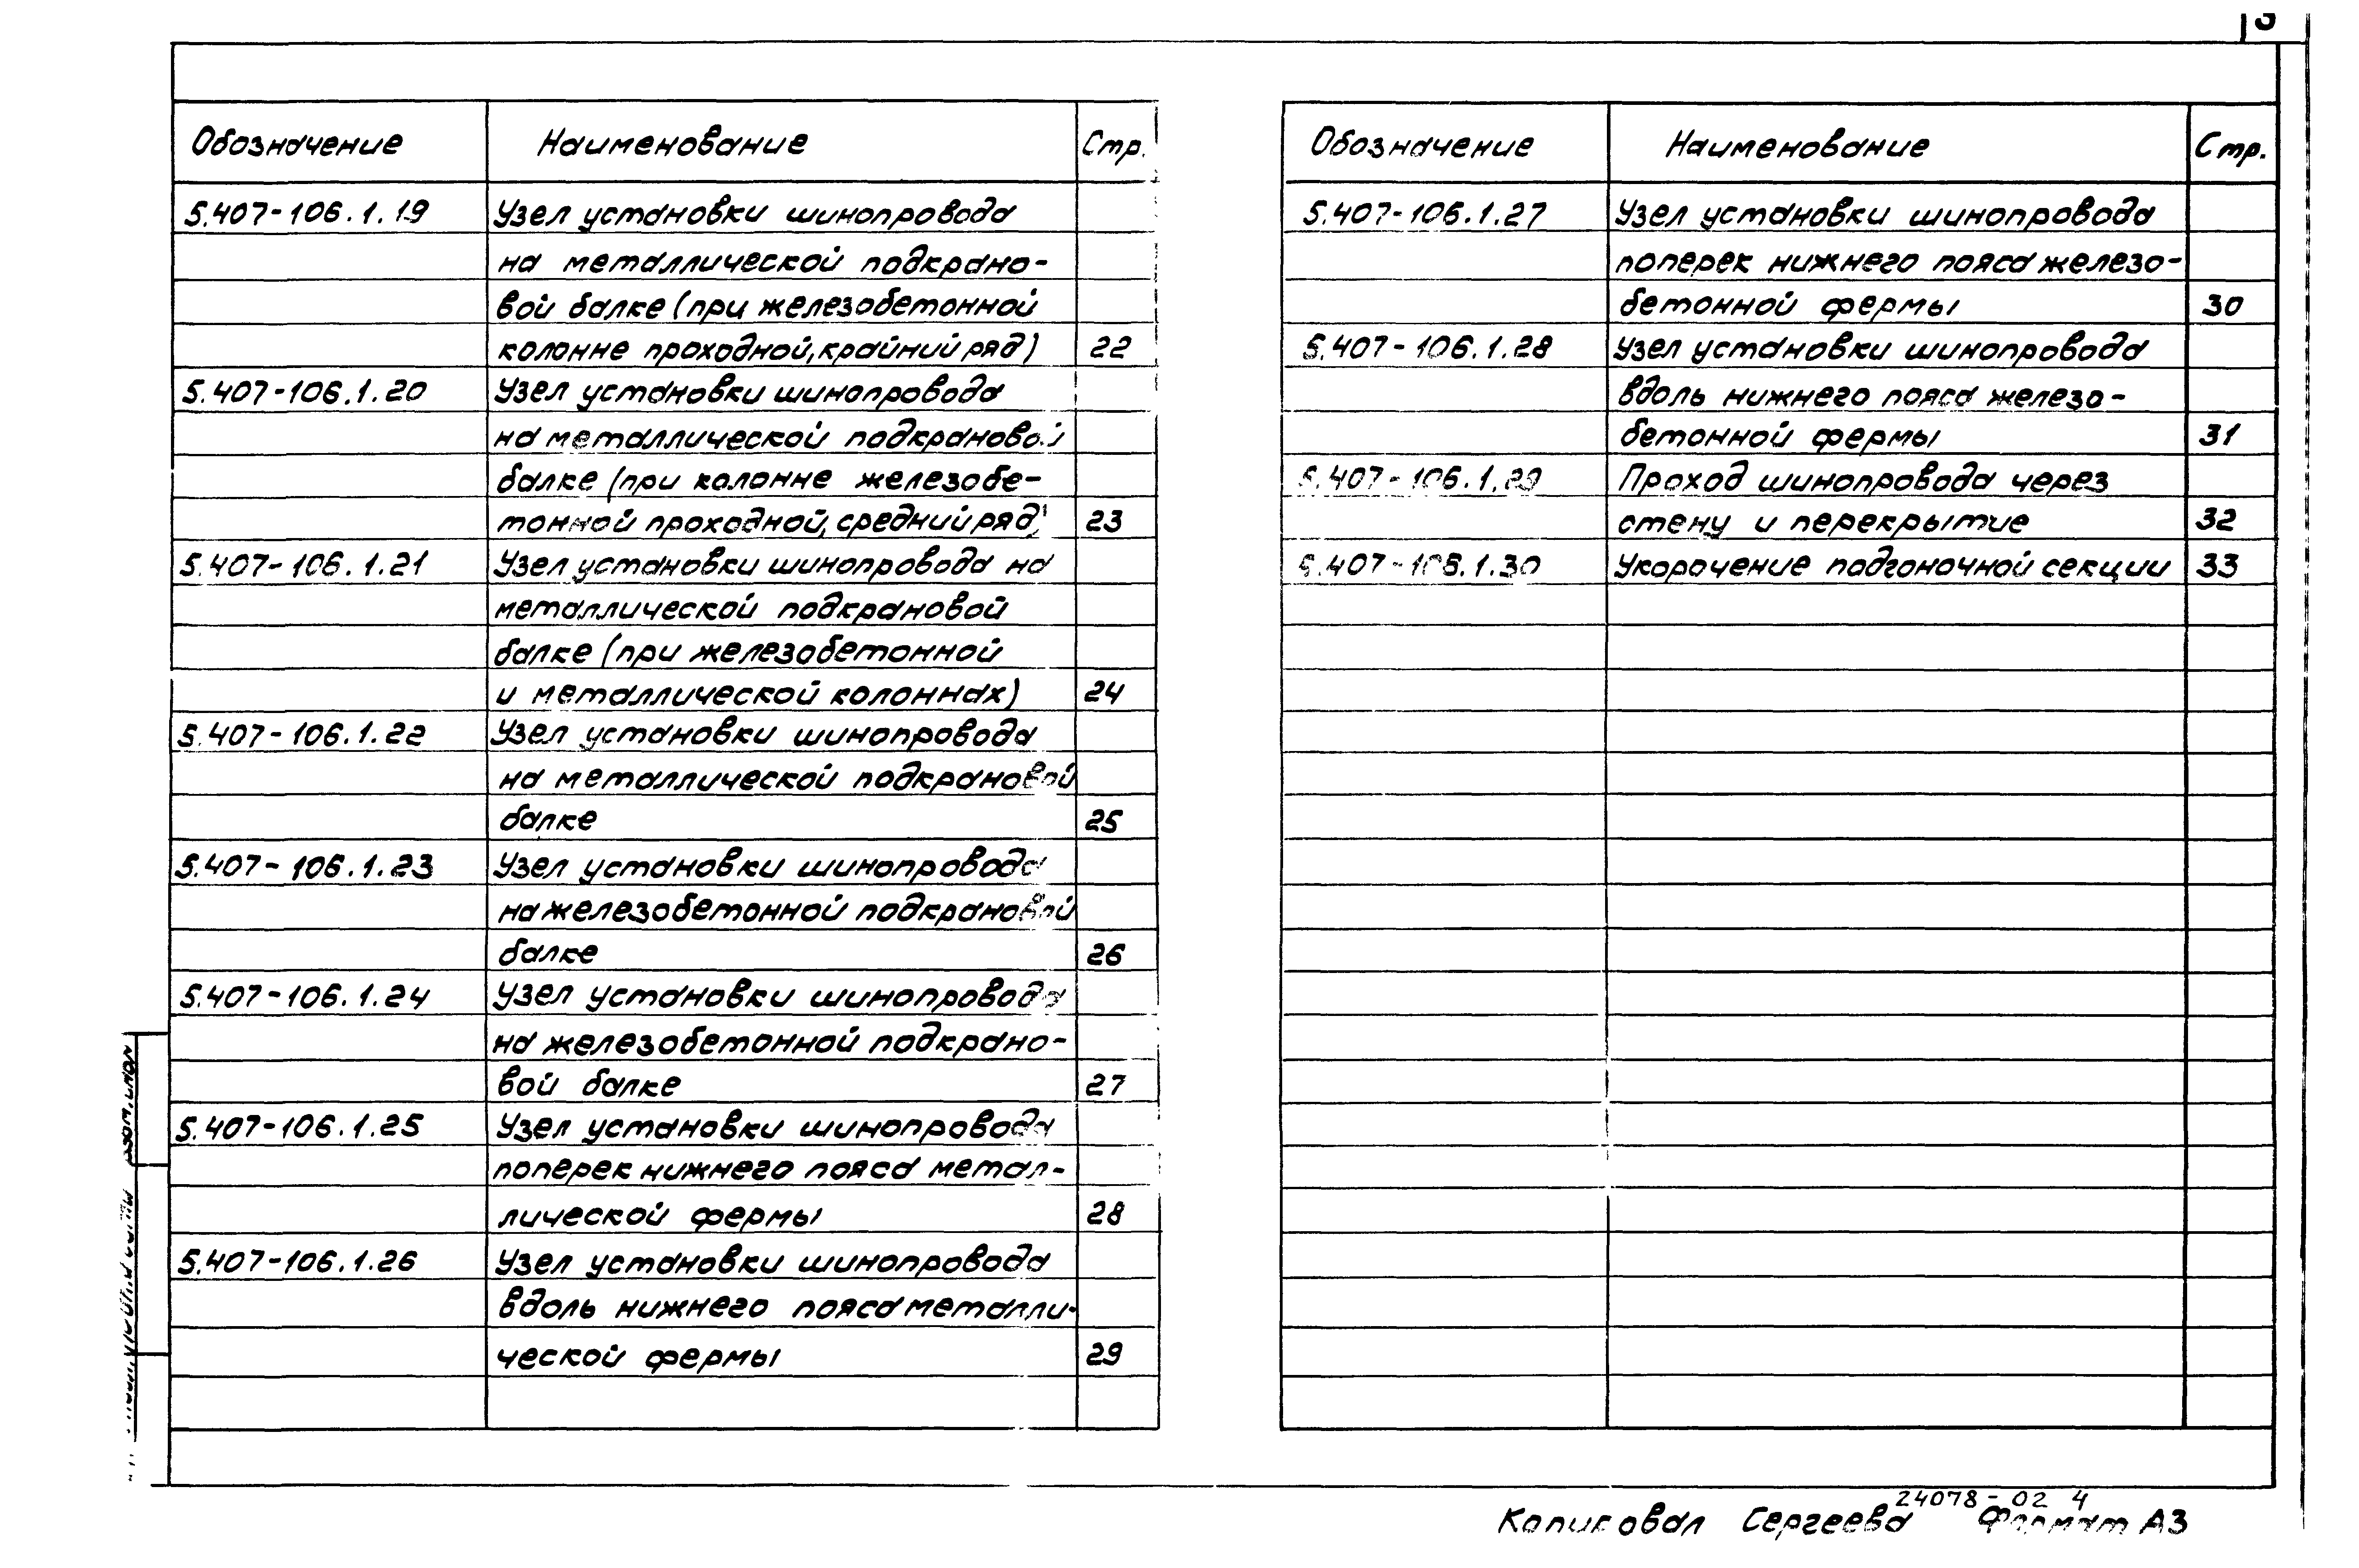 3
Обозначение Наименование Стр.
5.407-106.1.19 Узел установки шинопровода
на металлической подкрано-
вой балке (при железобетонной
колонне проходной, крайний ряд) 22
5.407-106.1.20 Узел установки шинопровода
на металлической подкрановой
балке (при колонне железобе-
тонной проходной, средний ряд) 23
5.407-106.1.21 Узел установки шинопровода на
металлической подкрановой
балке (при железобетонной
и металлической колоннах) 24
5.407-106.1.22 Узел установки шинопровода
на металлической подкрановой
балке 25
5.407-106.1.23 Узел установки шинопровода
на железобетонной подкрановой
балке 26
5.407-106.1.24 Узел установки шинопровода
на железобетонной подкрано-
вой балке 27
5.407-106.1.25 Узел установки шинопровода
поперек нижнего пояса метал-
лической фермы 28
5.407-106.1.26 Узел установки шинопровода
вдоль нижнего пояса металли-
ческой фермы 29
Обозначение Наименование Стр.
5.407-106.1.27 Узел установки шинопровода
поперек нижнего пояса железо-
бетонной фермы 30
5.407-106.1.28 Узел установки шинопровода
вдоль нижнего пояса железо-
бетонной фермы 31
5.407-106.1.29 Проход шинопровода через
стену и перекрытие 32
5.407-106.1.30 Укорочение подгоночной секции 33
24078-02 4
Копировал Сергеева Формат А3